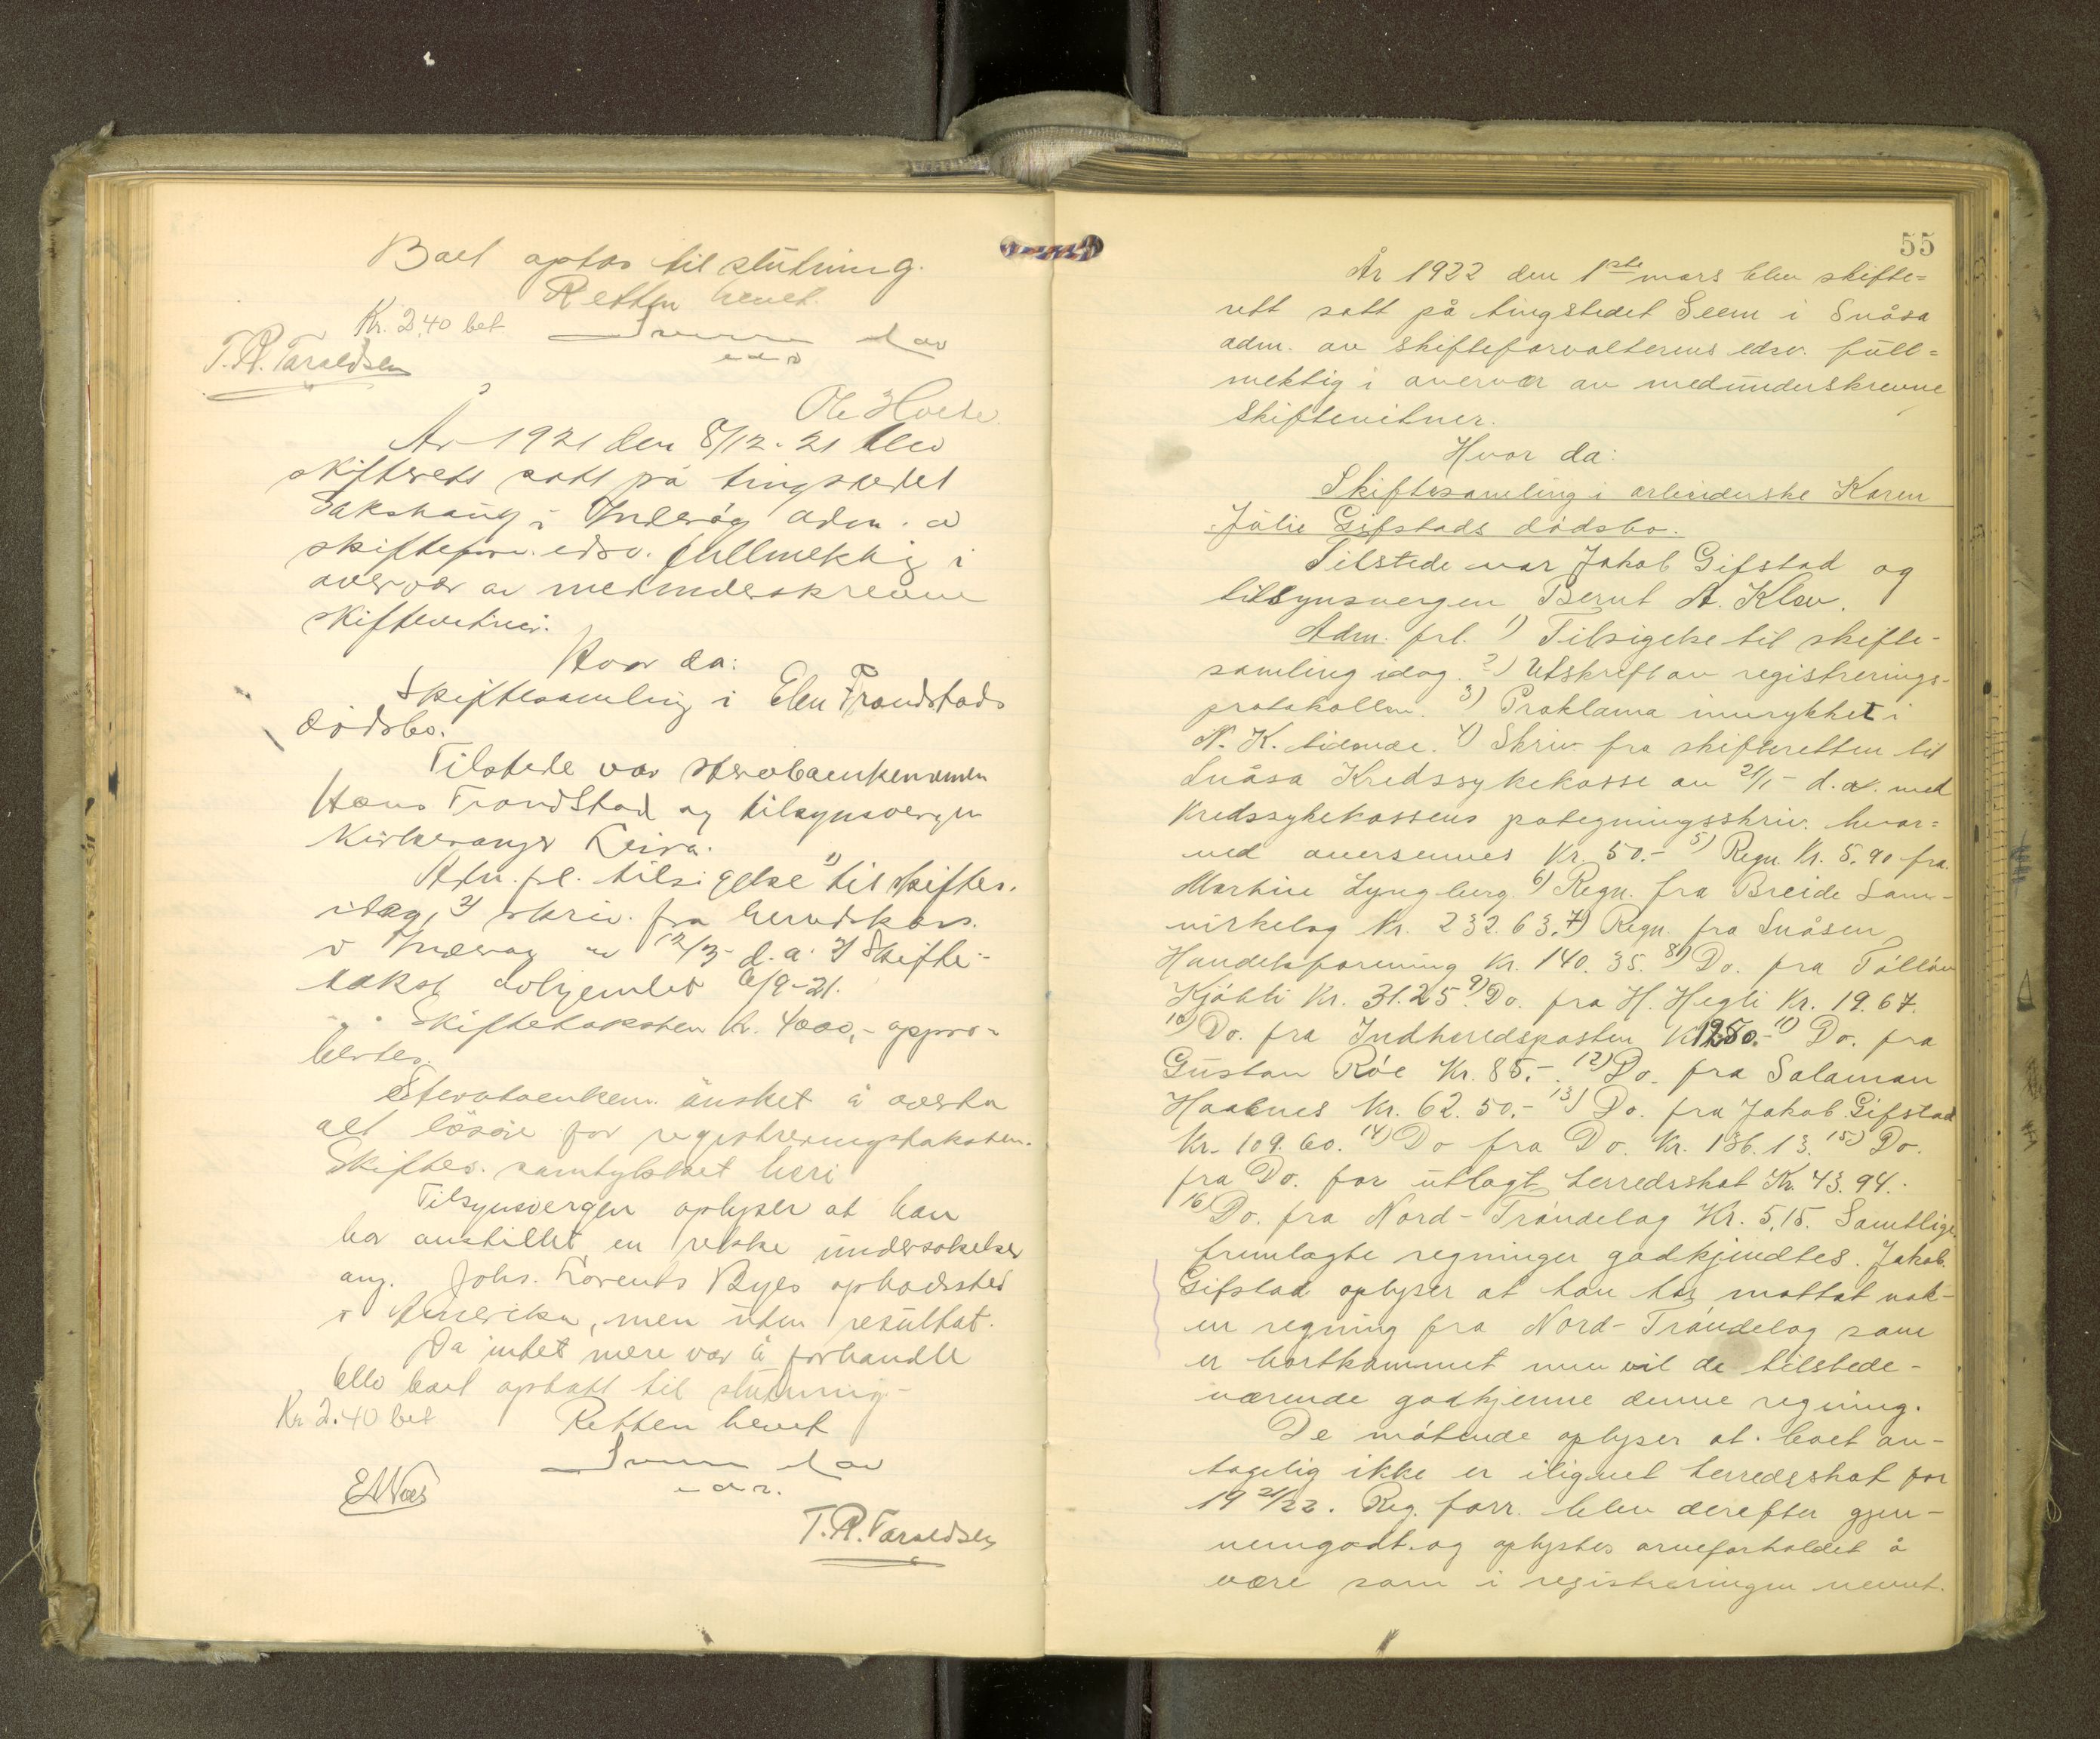 Boet optas til slutning.
Retten hevet.
Kr. 2.40 bet.
T. R. Taraldsen
Ole Hveho
År 1921 den 8/12-21 blev
skifterett satt på tingstedet
Sakshaug i Inderøy adm. av
skifteforv. edsv. fullmektig i
overvær av medunderskrevne
skiftevitner.
Hvor da:
Skiftesamling i Elen Trondstads
dødsbo.
Tilstede var stervboenkemannen
Hans Trondstad og tilsynsvergen
kirkesanger Leira.
Adm. frl. tilsigelse 1) til skiftes.
idag, 2) skriv. fra herredskass.
i Inderøy av 12/3 d.a. 3) Skifte-
takst avhjemlet 6/9-21.
Skiftetaksten kr. 4000,- appro-
bertes.
Stervboenkem. ønsket å overta
alt løsøre for registreringstaksten.
Skiftes. samtykket heri
Tilsynsvergen oplyser at han
har anstillet en rekke undersøkelser
ang. Johs. Lorents Byes opholdssted
i Amerika, men uten resultat.
Da intet mere var å forhandle
blev boet optatt til slutning.-
Kr 2.40 bet
Retten hevet
E M Næs
T. R. Taraldsen
55
År 1922 den 1ste mars blev skifte=
rett satt på tingstedet Seem i Snåsa
adm. av skifteforvalterens edsv. full=
mektig i overvær av medunderskrevne
skiftevitner.
Hvor da:
Skiftesamling i arbeiderske Karen
Julie Gifstads dødsbo.
Tilstede var Jakob Gifstad og
tilsynsvergen Bernt A. Klev.
Adm. frl. 1) Tilsigelse til skifte-
samling idag. 2) Utskrift av registrerings-
protokollen. 3) Proklama innrykket i
N. K. tidende. 4) Skriv fra skifteretten til
Snåsa Kredssykekasse av 21/1- d.a. med
Kredssykekassens påtegningsskriv. hvor=
ved oversennes kr. 50.- 5) Regn. kr. 5.90 fra
Martine Lyngberg. 6) Regn. fra Breide Sam-
virkelag kr. 232.63. 7) Regn. fra Snåsen
Handelsforening kr. 140.35. 8) Do. fra
Kjøhli kr. 31.25. 9) Do. fra H. Hegli kr. 19.67.
10) Do. fra Indherredsposten kr 12.50.- 11) Do. fra
Gustav Röe kr. 85.-. 12) Do. fra Salamon
Haabnes kr. 62.50.- 13) Do. fra Jakob Gifstad
kr. 109.60. 14) Do fra Do. kr. 136.13. 15) Do.
fra Do. for utlagt herredsskat kr. 43.94.
16) Do. fra Nord-Trøndelag kr. 5,15. Samtlige
fremlagte regninger godkjendtes. Jakob
Gifstad oplyser at han har mottat nok-
en regning fra Nord-Trøndelag som
er bortkommet men vil de tilstede-
værende godkjenne denne regning.
De møtende oplyser at boet an-
tagelig ikke er ilignet herredsskat for
19 21/22. Reg. forr. blev derefter gjen-
nemgådt og oplystes arveforholdet å
være som i registreringen nevnt.